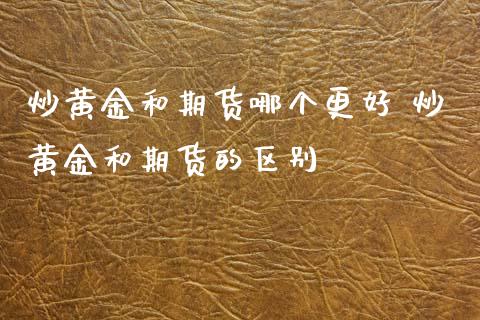 炒黄金和期货哪个更好 炒
黄金和期货的区别